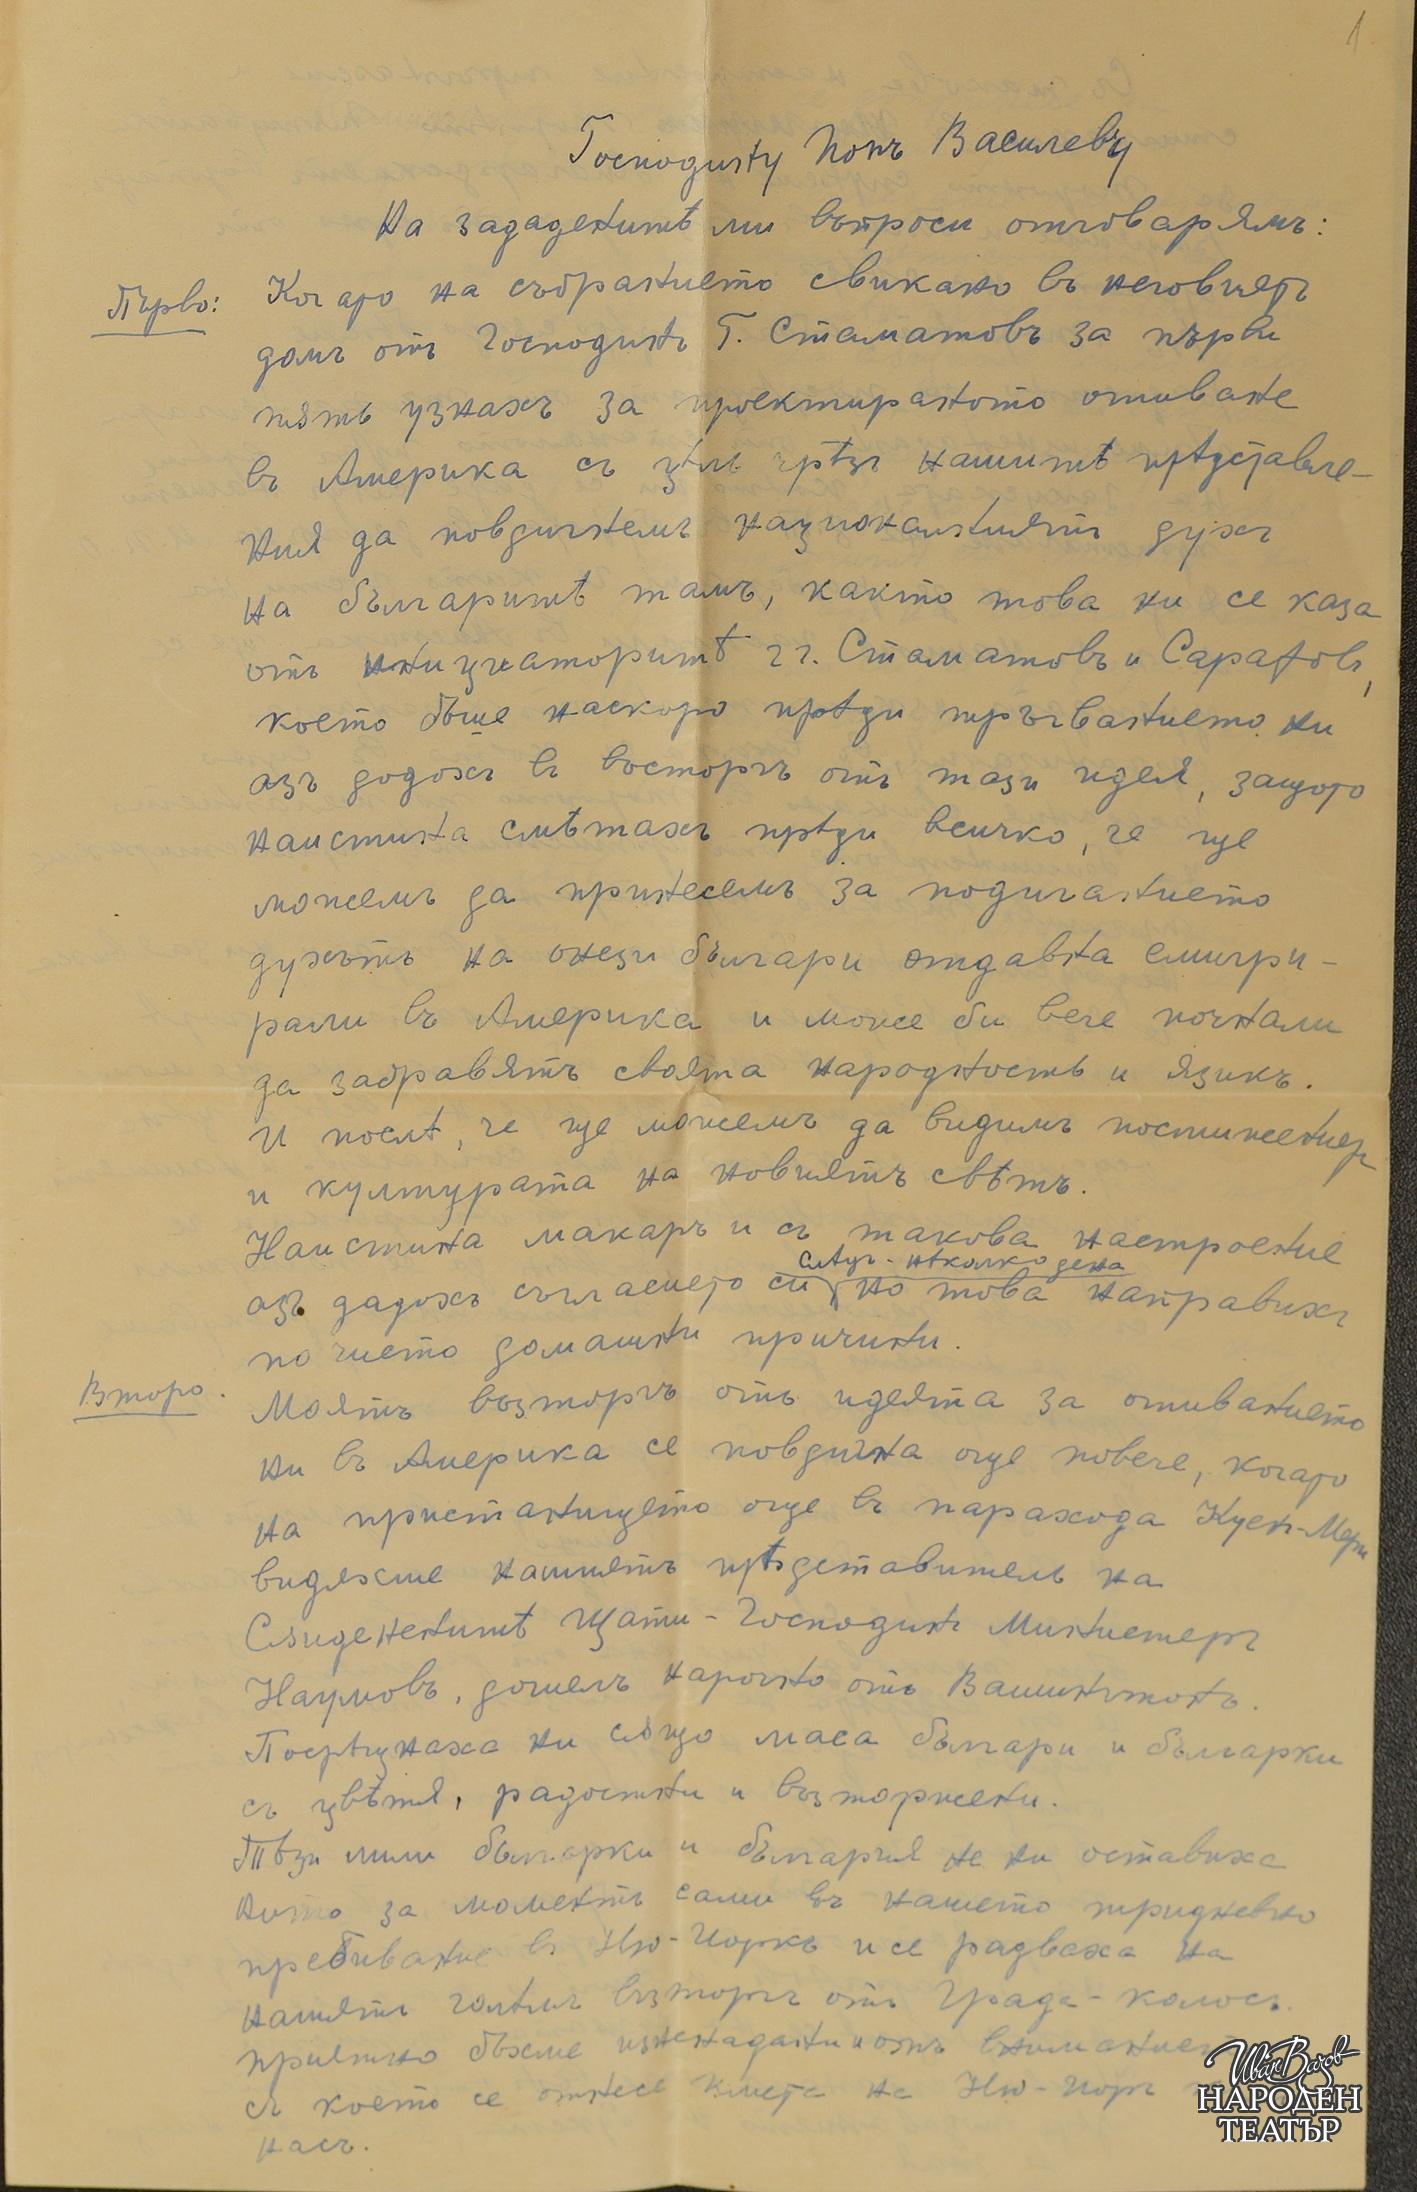 1
Господину Попъ Василевъ
На зададенитѣ ми въпроси отговарямъ:
Първо: Когато на събранието свикано въ неговиятъ
домъ отъ Господинъ Г. Стаматовъ за първи
пять узнахъ за проектираното отиване
въ Америка съ цѣль чрѣзъ нашитѣ прѣдставле-
ния да повдигнемъ националниятъ духъ
на българитѣ тамъ, както това ни се каза
отъ инициаторитѣ г г. Стаматовъ и Сарафовъ,
което бѣше наскоро прѣди тръгванието ни
азъ додохъ въ восторгъ отъ тази идея, защото
наистина смѣтахъ прѣди всичко, че ще
можемъ да принесемъ за подигането
духътъ на онези българи отдавна емигри-
рали въ Америка и може би вече почнали
да забравятъ своята народность и язикъ.
И послѣ, че ще можемъ да видимъ постижениета
и културата на новиятъ свѣтъ.
Наистина макаръ и съ такова настроение
слѣдъ - нѣколко дена
азъ дадохъ съгласието си но това направихъ
по чисто домашни причини.
Второ. Моятъ възторгъ отъ идеята за отиванието
ни въ Америка се повдигна още повече, когато
на пристанището още въ парахода Куен-Мери
видяхме нашиятъ прѣдставитель на
Съединенитѣ Щати - Господинъ Министеръ
Наумовъ, дошелъ нарочно отъ Вашингтонъ.
Посрѣщнаха ни също маса българи и българки
съ цвѣтя, радостни и възторжени.
Тѣзи мили българки и българия не ни оставиха
нито за моментъ сами въ нашето тридневно
пребивание въ Ню-Иоркъ и се радваха на
нашиятъ голѣмъ възторгъ отъ Града - колосъ.
приятно бѣхме изненадани и отъ вниманието
съ което се отнесе кмета на Ню-Иоръ
насъ.
Иван Вазов
НАРОДЕН
ТЕАТЪР